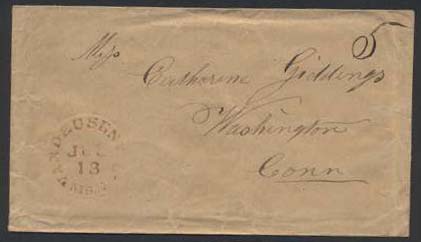 5
Miss
Catharine Giddings
Washington
Conn
VANDEUSEN
13